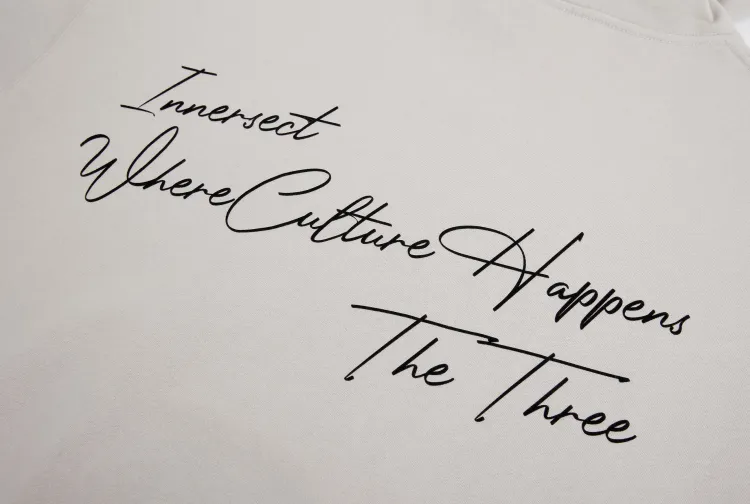 Innersect
Where Culture Happens
The Three